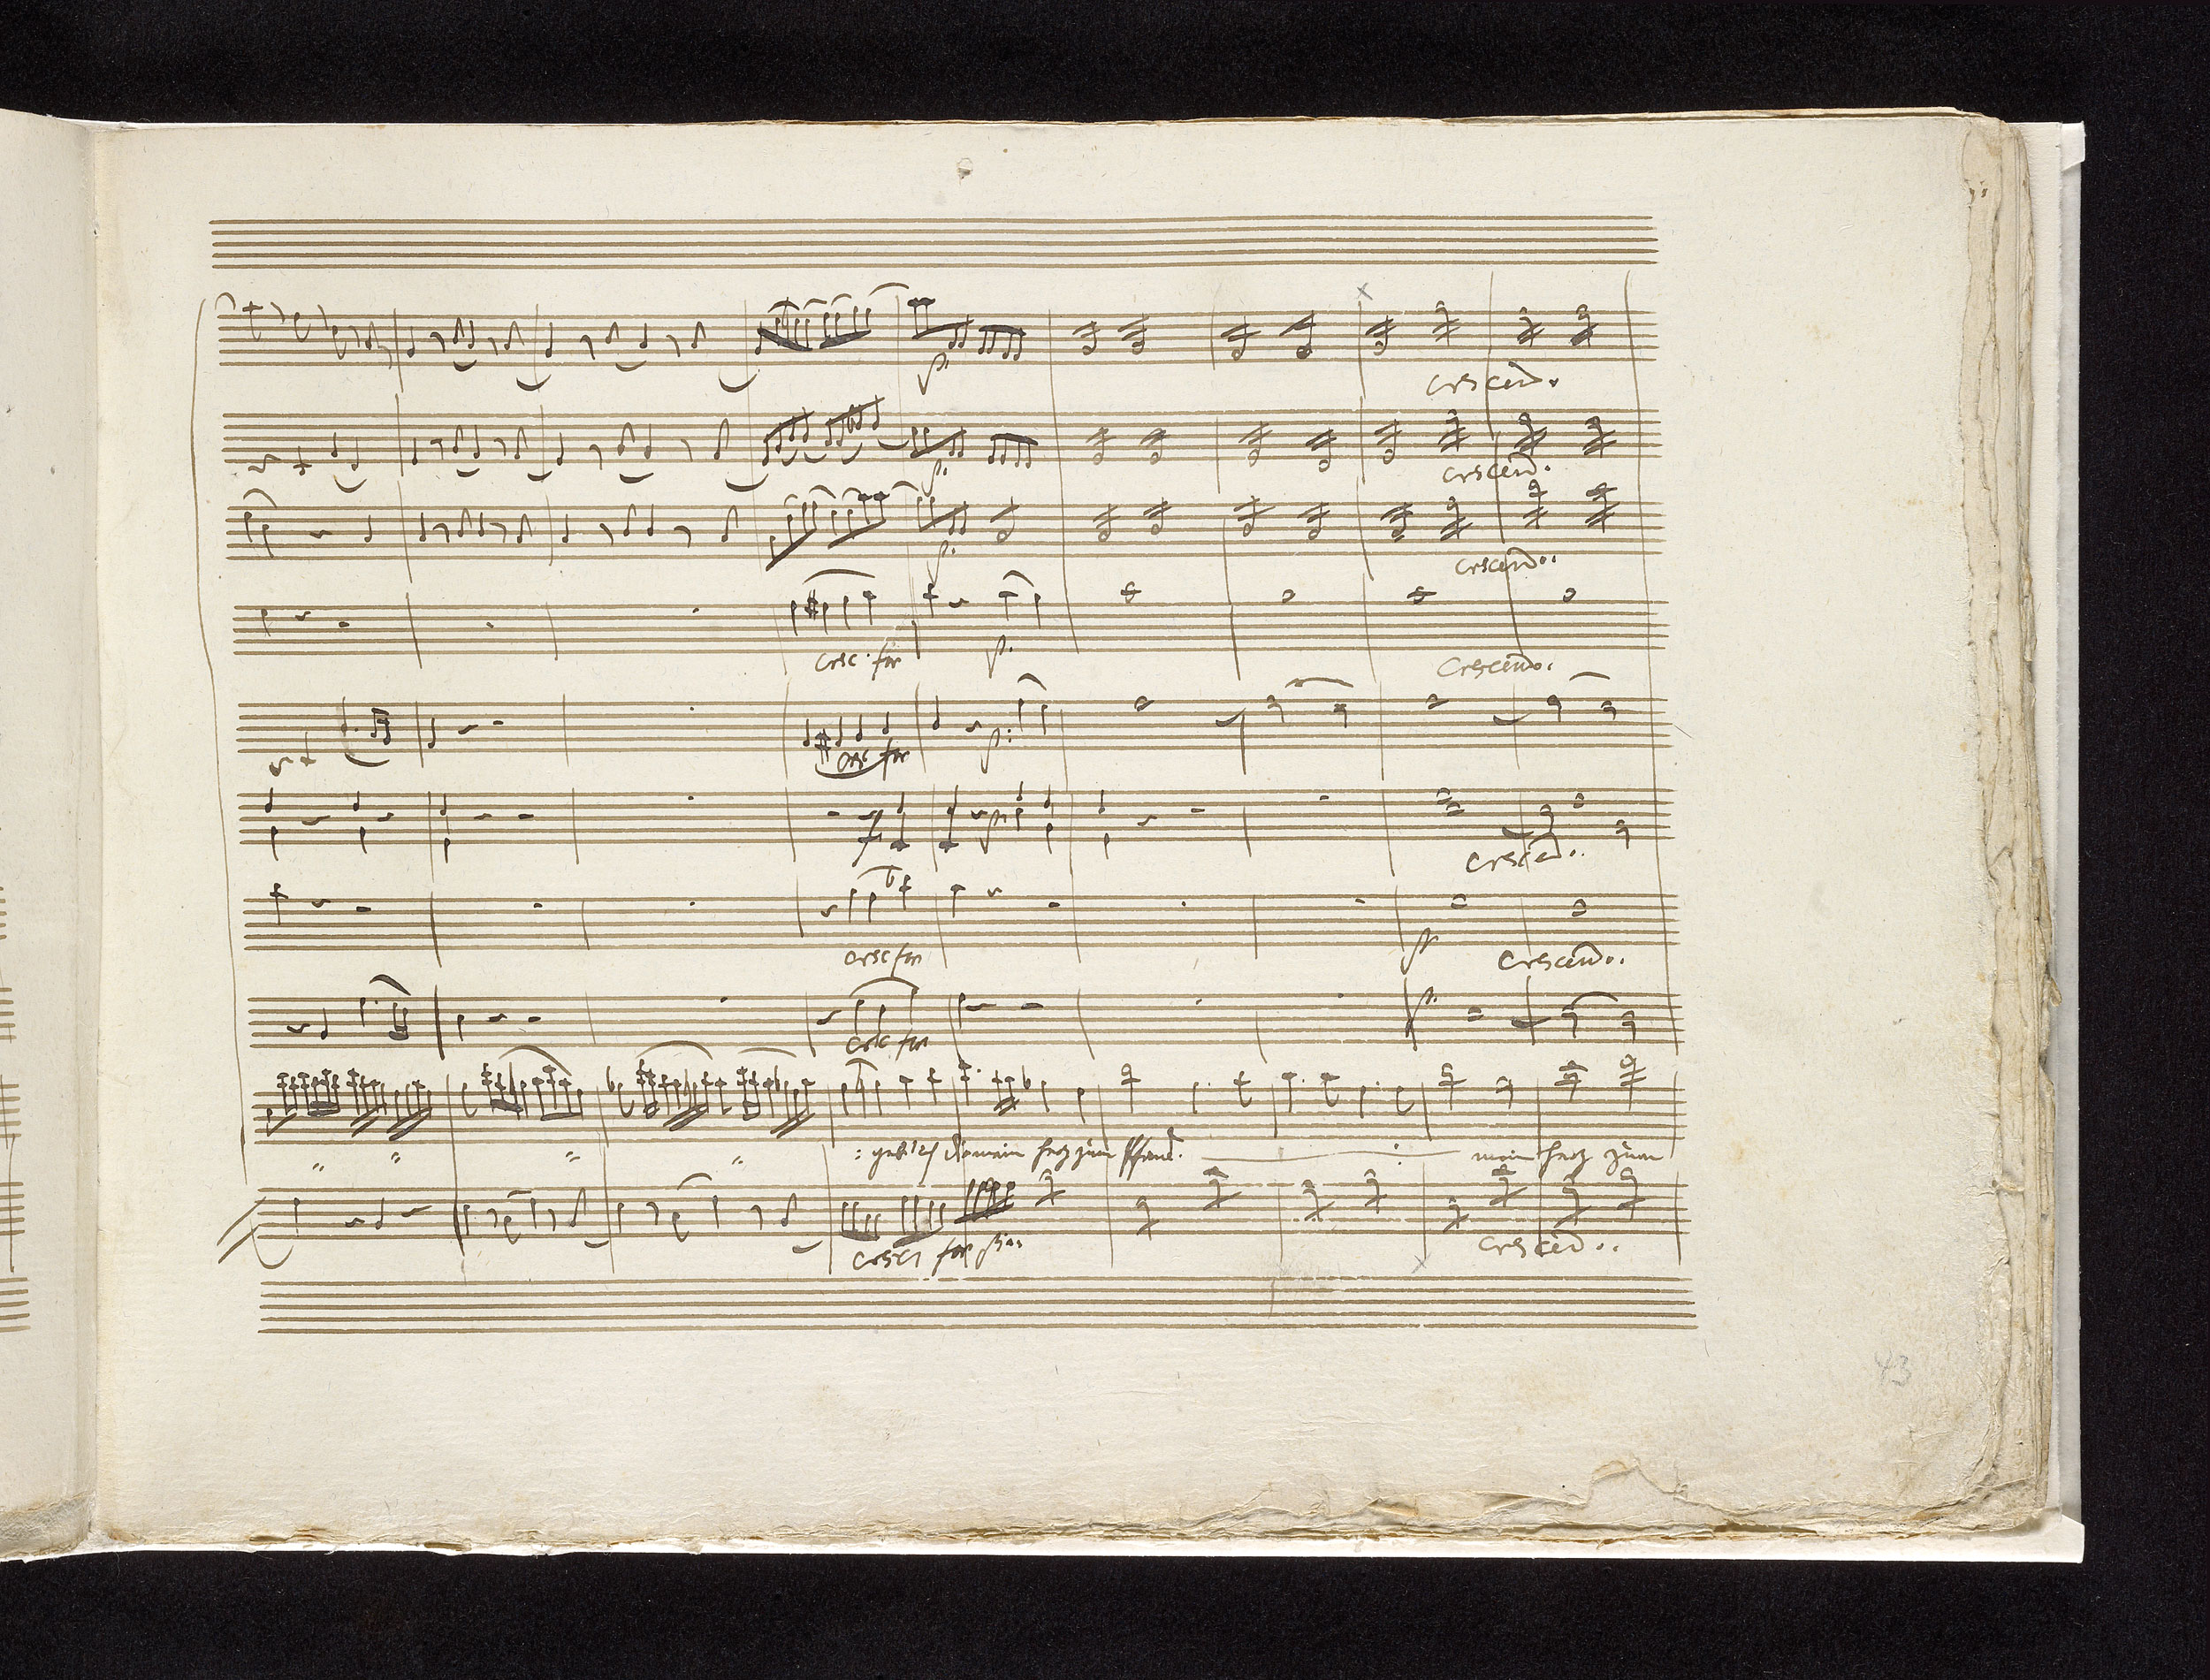 p:
crescend.
p:
crescend.
p:
crescend..
cresc: for p:
Crescendo.
cresc for p:
f p:
crescend..
cresc for p
Crescend..
cresc for p:
: geb' ich dir mein herz zum Pfand. : mein herz zum
cresc: for pia:
crescend..
43